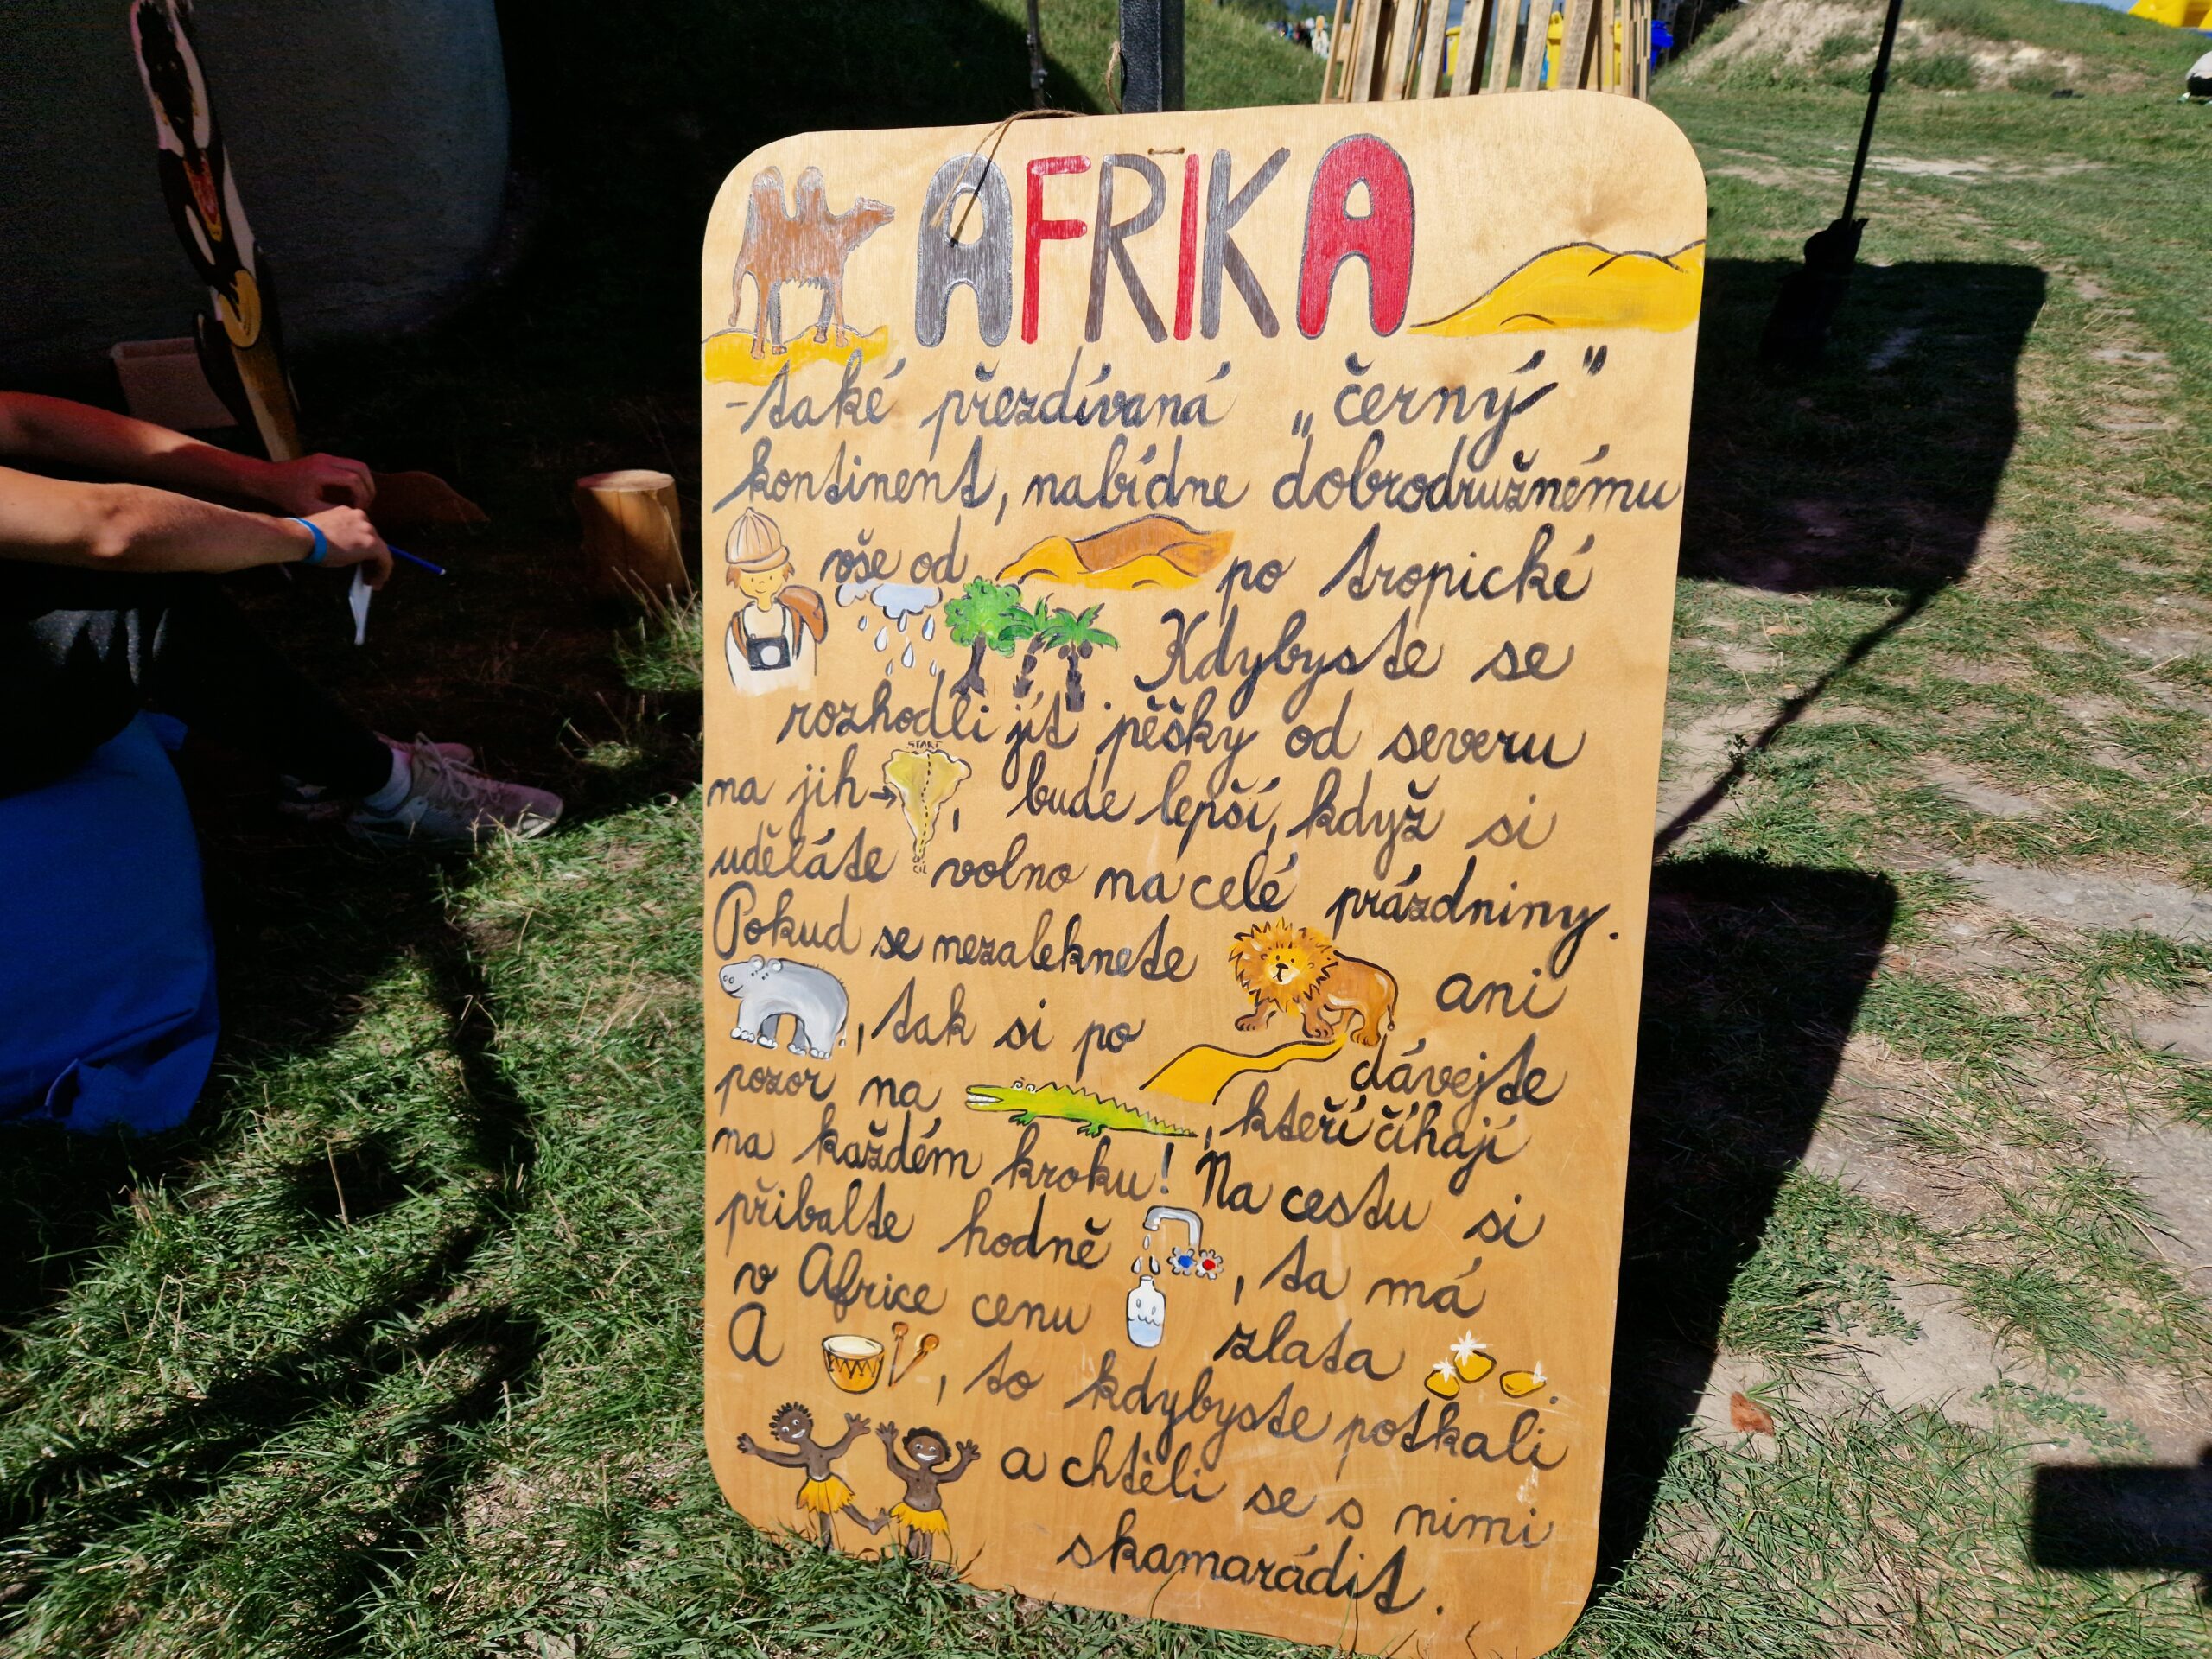 AFRIKA
-také přezdívaná „černý"
kontinent, nabídne dobrodružnému
vše od po tropické
Kdybyste se
rozhodli jít pěšky od severu
START
na jih → , bude lepší, když si
CÍL
uděláte volno na celé prázdniny.
Pokud se nezaleknete ani
, tak si po dávejte
pozor na , kteří číhají
na každém kroku! Na cestu si
přibalte hodně , ta má
v Africe cenu zlata .
A , to kdybyste potkali
a chtěli se s nimi
skamarádit.